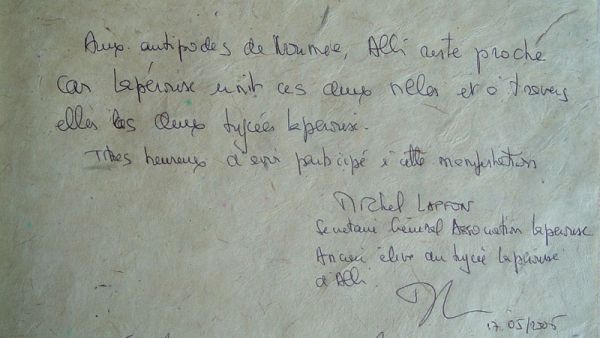 Aux antipodes de Nouméa, Albi reste proche
Car Lapérouse unit ces deux villes et à travers
elles les deux lycées Lapérouse.
Très heureux d'avoir participé à cette manifestation
Michel
Secrétaire Général Association Lapérouse
Ancien élève du lycée Lapérouse
d'Albi
17.05/2005